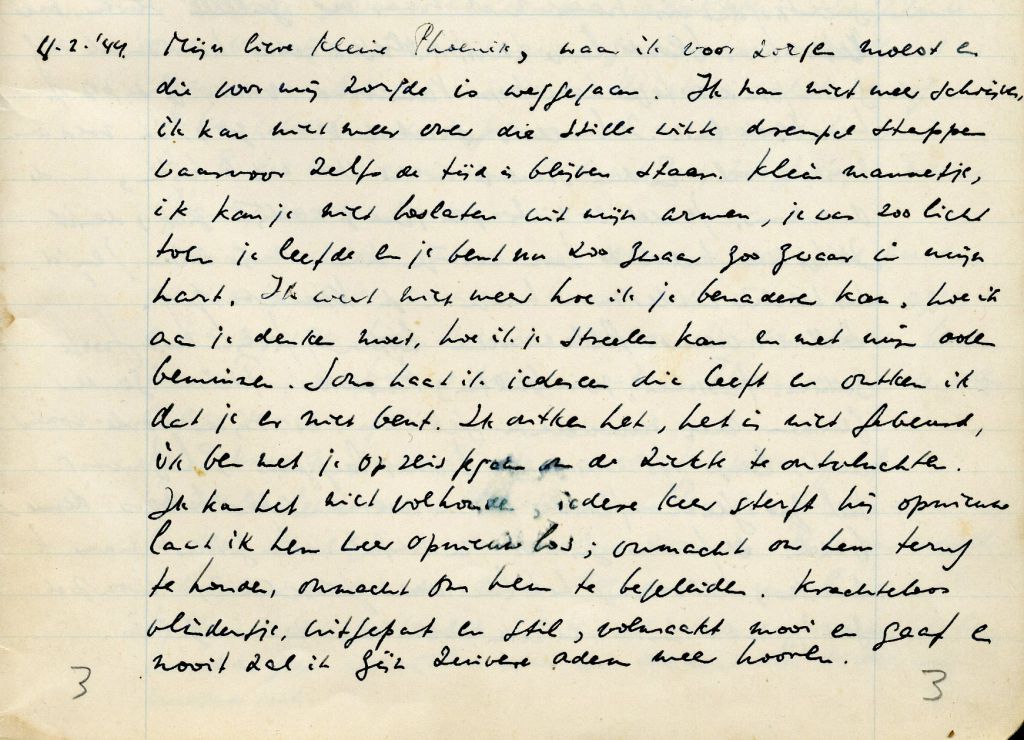 4-2-'44. Mijn lieve kleine Phoenix, waar ik voor zorgen moest en
die voor mij zorgde is weggegaan. Ik kan niet meer schrijven,
ik kan niet meer over die stille witte drempel stappen
waarvoor zelfs de tijd is blijven staan. Klein mannetje,
ik kan je niet loslaten uit mijn armen, je was zoo licht
toen je leefde en je bent nu zoo zwaar zoo zwaar in mijn
hart. Ik weet niet meer hoe ik je benaderen kan, hoe ik
aan je denken moet, hoe ik je streelen kan en met mijn adem
beminnen. Soms haat ik iedereen die leeft en ontken ik
dat je er niet bent. Ik ontken het, het is niet gebeurd,
ik ben met je op reis gegaan om de ziekte te ontvluchten.
Ik kan het niet volhouden, iedere keer sterft hij opnieuw
laat ik hem weer opnieuw los; onmacht om hem terug
te houden, onmacht om hem te begeleiden. Krachteloos
vlindertje, uitgeput en stil, volmaakt mooi en gaaf en
nooit zal ik zijn zuivere adem meer hooren.
3 3